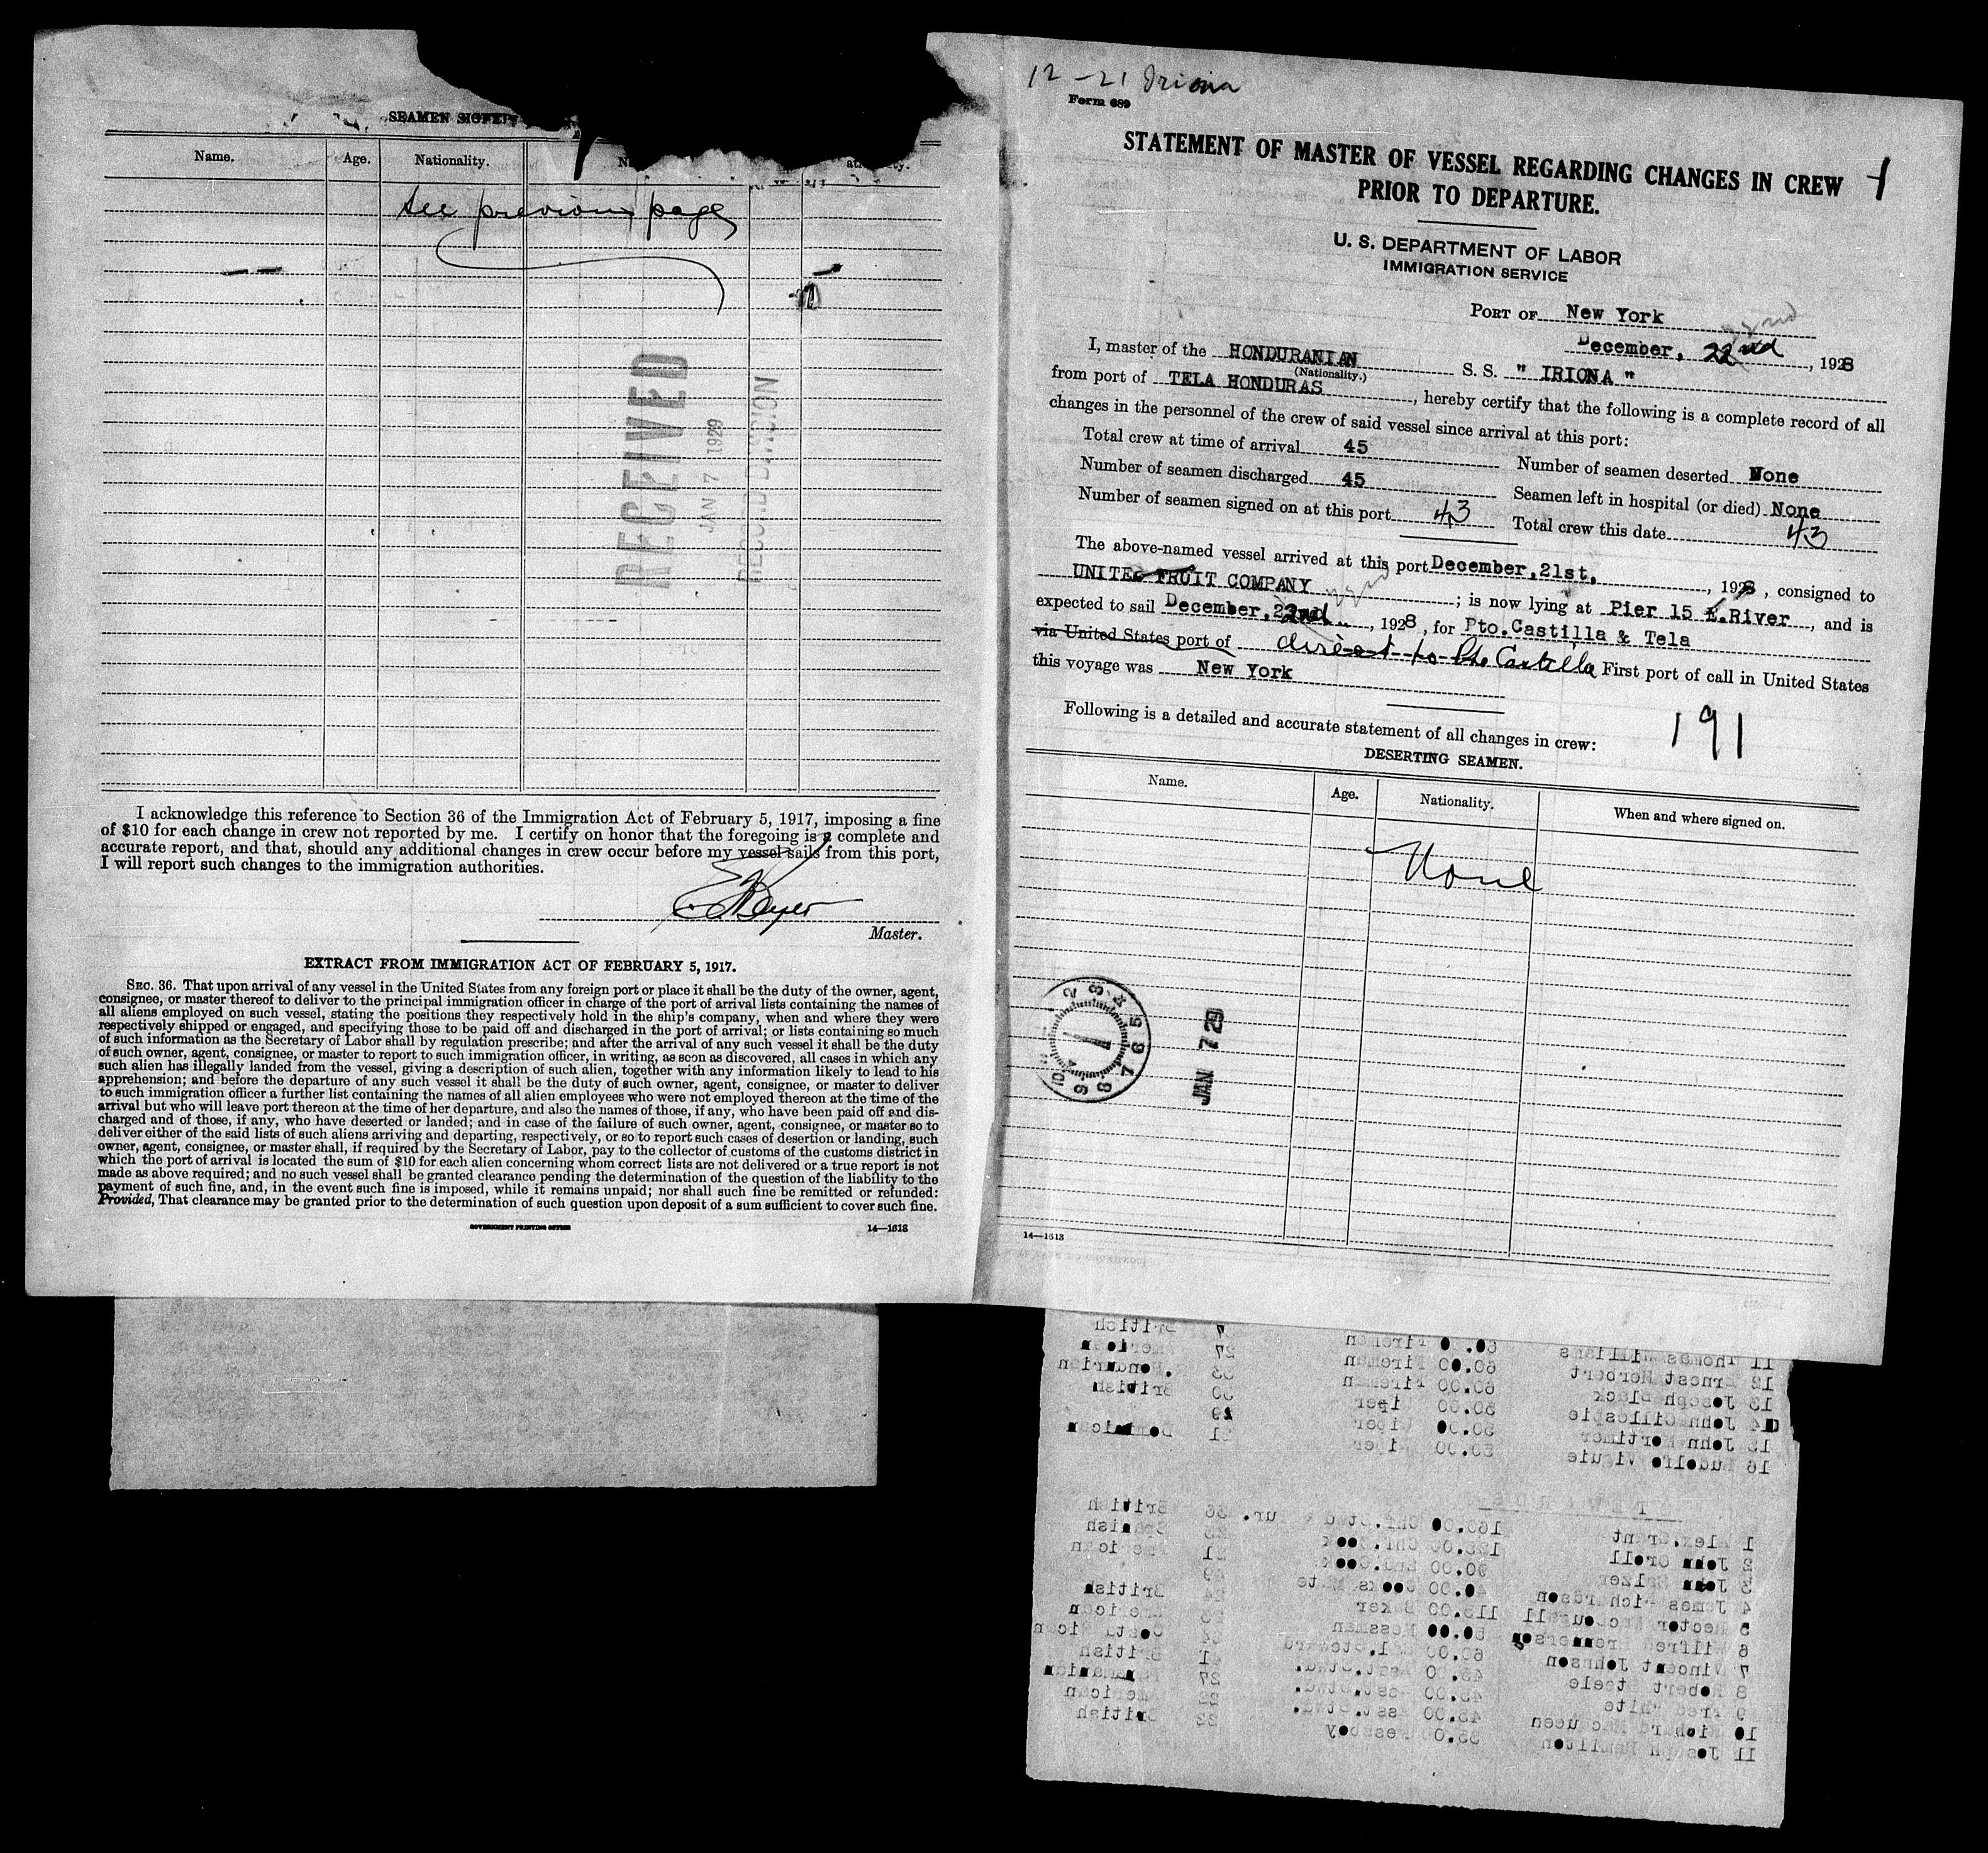 SEAMEN SIGNED
Name. Age. Nationality.
See previous page
RECEIVED
JAN 7 1929
RECORD DIVISION
I acknowledge this reference to Section 36 of the Immigration Act of February 5, 1917, imposing a fine
of $10 for each change in crew not reported by me. I certify on honor that the foregoing is a complete and
accurate report, and that, should any additional changes in crew occur before my vessel sails from this port,
I will report such changes to the immigration authorities.
Master.
EXTRACT FROM IMMIGRATION ACT OF FEBRUARY 5, 1917.
SEC. 36. That upon arrival of any vessel in the United States from any foreign port or place it shall be the duty of the owner, agent,
consignee, or master thereof to deliver to the principal immigration officer in charge of the port of arrival lists containing the names of
all aliens employed on such vessel, stating the positions they respectively hold in the ship's company, when and where they were
respectively shipped or engaged, and specifying those to be paid off and discharged in the port of arrival; or lists containing so much
of such information as the Secretary of Labor shall by regulation prescribe; and after the arrival of any such vessel it shall be the duty
of such owner, agent, consignee, or master to report to such immigration officer, in writing, as soon as discovered, all cases in which any
such alien has illegally landed from the vessel, giving a description of such alien, together with any information likely to lead to his
apprehension; and before the departure of any such vessel it shall be the duty of such owner, agent, consignee, or master to deliver
to such immigration officer a further list containing the names of all alien employees who were not employed thereon at the time of the
arrival but who will leave port thereon at the time of her departure, and also the names of those, if any, who have been paid off and dis-
charged and of those, if any, who have deserted or landed; and in case of the failure of such owner, agent, consignee, or master so to
deliver either of the said lists of such aliens arriving and departing, respectively, or so to report such cases of desertion or landing, such
owner, agent, consignee, or master shall, if required by the Secretary of Labor, pay to the collector of customs of the customs district in
which the port of arrival is located the sum of $10 for each alien concerning whom correct lists are not delivered or a true report is not
made as above required; and no such vessel shall be granted clearance pending the determination of the question of the liability to the
payment of such fine, and, in the event such fine is imposed, while it remains unpaid; nor shall such fine be remitted or refunded:
Provided, That clearance may be granted prior to the determination of such question upon deposit of a sum sufficient to cover such fine.
GOVERNMENT PRINTING OFFICE 14—1613
12-21 Iriona
Form 689
STATEMENT OF MASTER OF VESSEL REGARDING CHANGES IN CREW
PRIOR TO DEPARTURE.
U. S. DEPARTMENT OF LABOR
IMMIGRATION SERVICE
PORT OF New York
December, 22nd, 1928
I, master of the HONDURANIAN S. S. " IRIONA "
(Nationality.)
from port of TELA HONDURAS, hereby certify that the following is a complete record of all
changes in the personnel of the crew of said vessel since arrival at this port:
Total crew at time of arrival 45 Number of seamen deserted None
Number of seamen discharged 45 Seamen left in hospital (or died) None
Number of seamen signed on at this port 43 Total crew this date 43
The above-named vessel arrived at this port December,21st, 1928, consigned to
UNITED FRUIT COMPANY ; is now lying at Pier 15 E.River, and is
expected to sail December,22nd, 1928, for Pto.Castilla & Tela
via United States port of direct to Pto Castilla First port of call in United States
this voyage was New York
191
Following is a detailed and accurate statement of all changes in crew:
DESERTING SEAMEN.
Name. Age. Nationality. When and where signed on.
None
JAN 7 29
14—1613
11 Thomas Williams 60.00 Fireman British
12 Ernest Herbert 60.00 Fireman 27 American
13 Joseph Black 60.00 Fireman 33 Honduranian
14 John Gillespie 50.00 Wiper 30 British
15 John Mortimer 50.00 Wiper 29
16 Rudolfo Viguie 50.00 Wiper 21 Dominican
1 Alex.Grant 160.00 Chf.Stwd & Pur. 36 British
2 John Oroll Chf.Cook Spanish
3 John Salzer 2nd.Cook 21 American
4 James Richardson Cooks Mate
5 Hector MacDougall 115.00 Baker British
6 Wilfred Bremmerson Messman American
7 Vincent Johnson 60.00 Steward Costa Rican
8 Robert Steele Asst.Stwd. 41 British
9 Fred White 45.00 Asst.Stwd. 27 Panamanian
10 Richard MacQueen 45.00 Asst.Stwd. 22 American
11 Joseph Hamilton Messboy 23 British